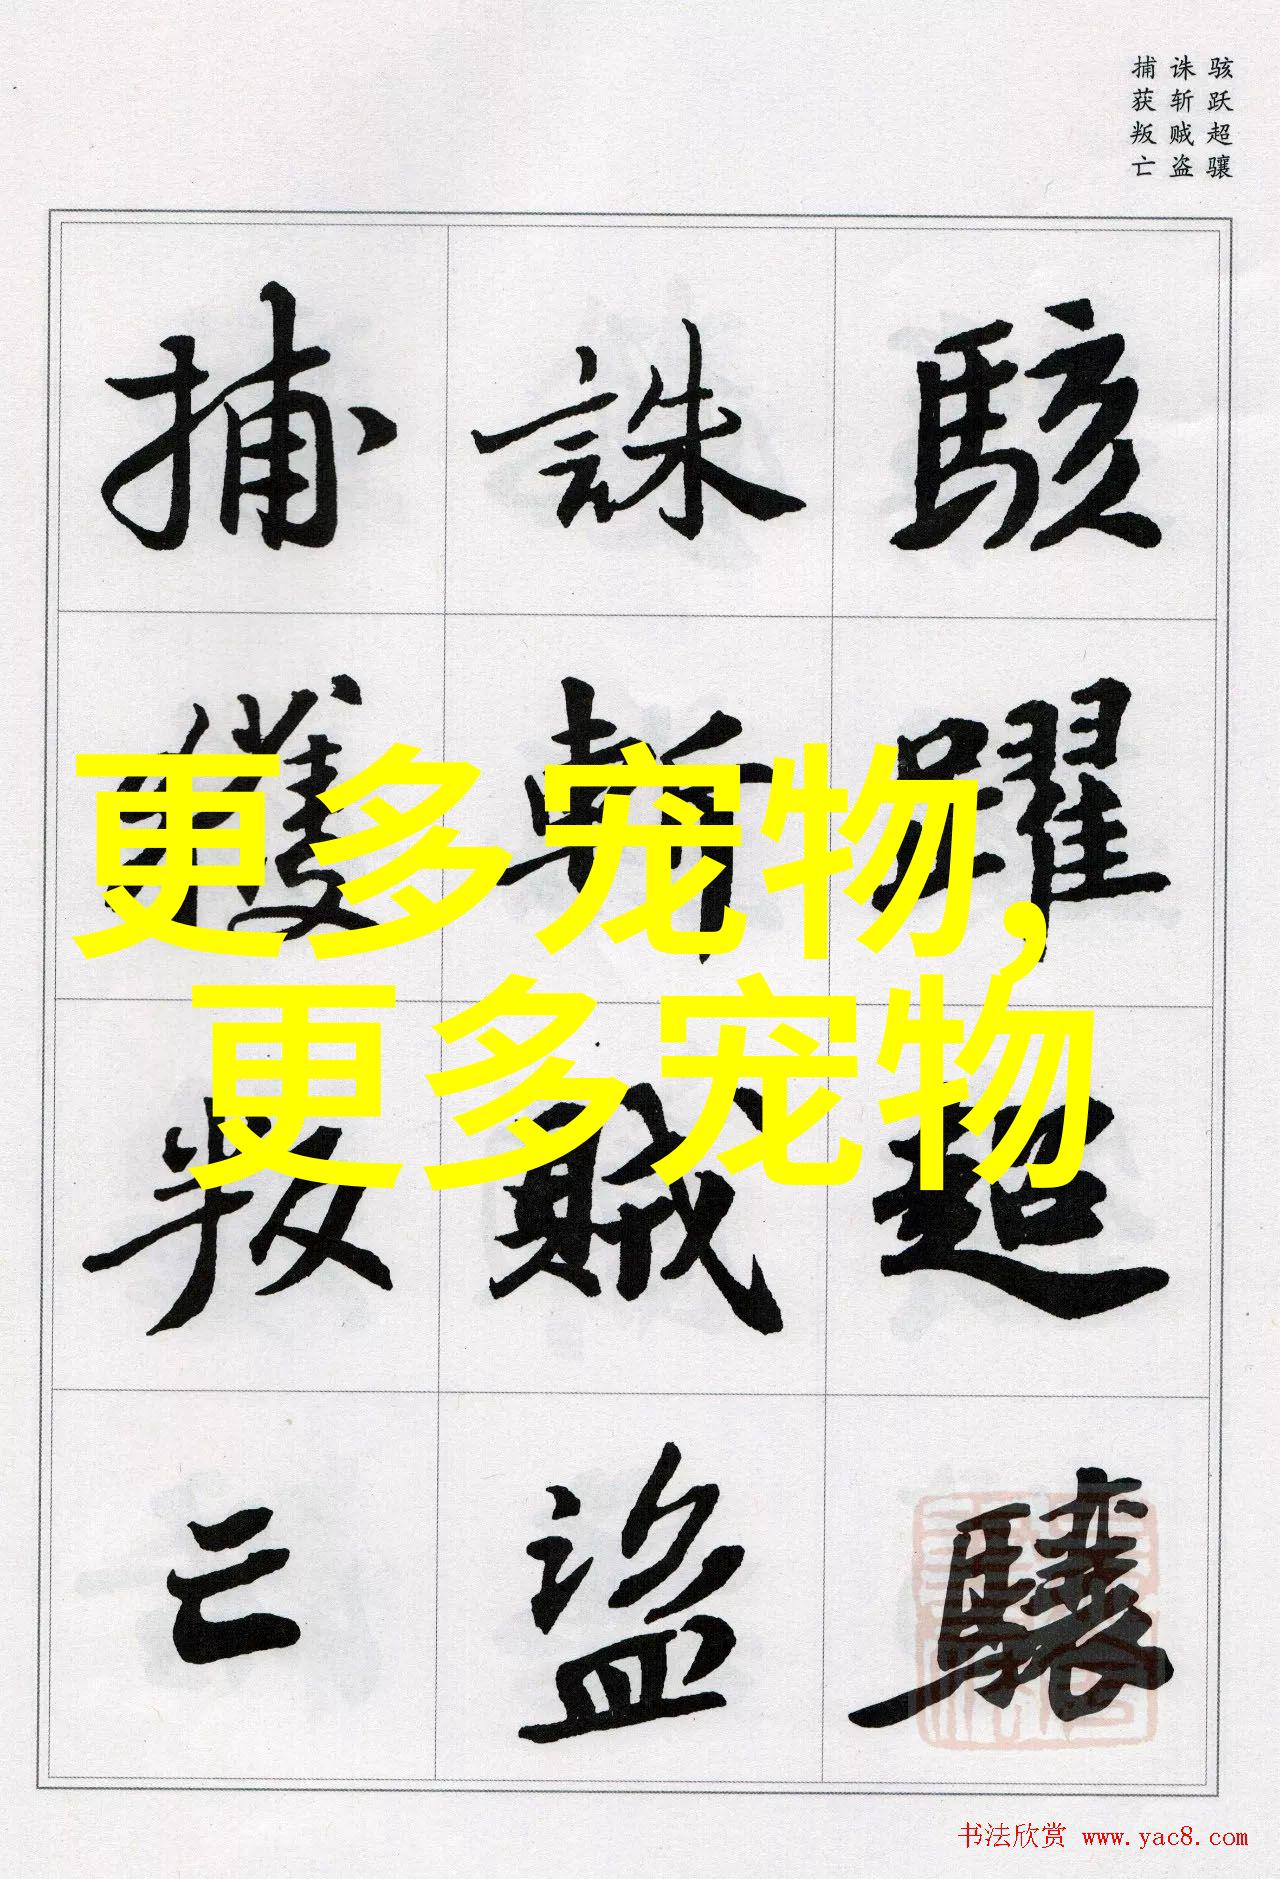 骇跃超骧
诛斩贼盗
捕获叛亡
駭躍超驤
誅斬賊盜
捕獲叛亡
更多宠物,
更多宠物
书法欣赏 www.yac8.com